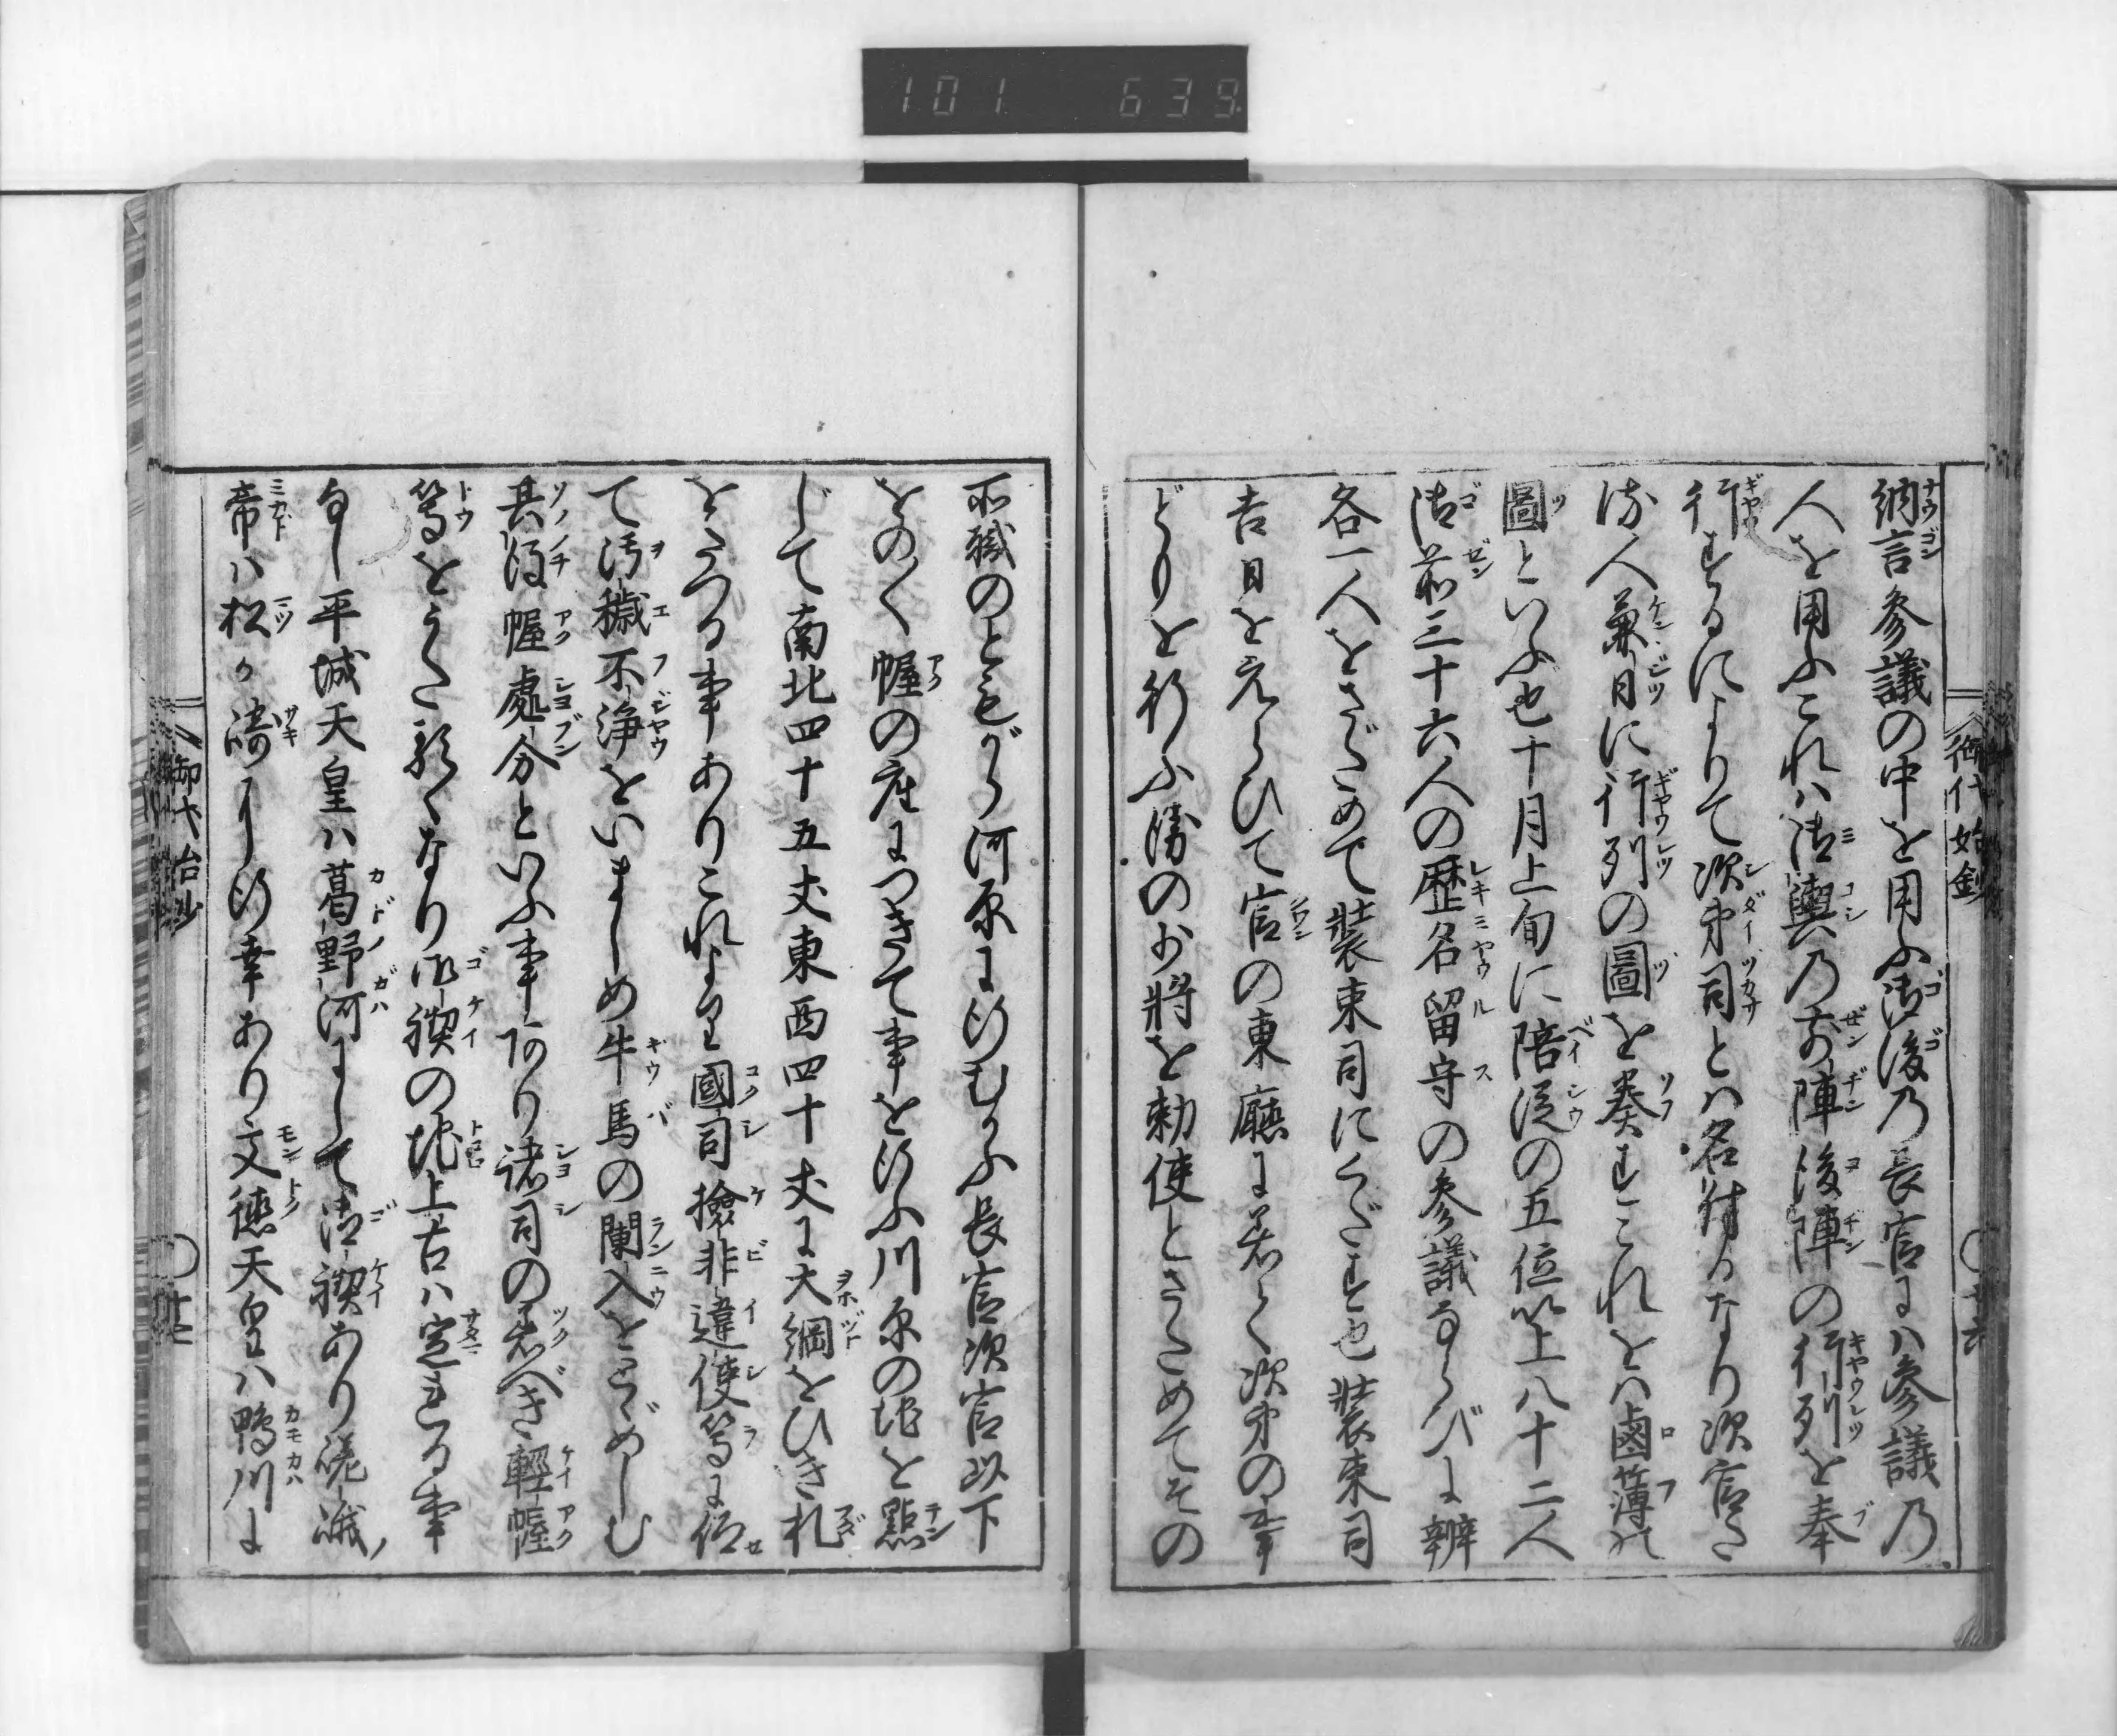 101 639
御代始鈔
納言参議の中を用ふ御後乃長官ハ参議乃
人を用ふこれハ御輿乃前陣後陣の行列を奉
行するによりて次第司とハ名付るなり次官
判人兼日に行列の圖を奏すこれをハ鹵簿
圖といふ也十月上旬に陪従の五位以上八十二人
御前三十六人の歴名留守の参議ならびに辨
各一人をさだめて装束司にくだす也装束司
吉日をえらひて官の東廳に着く次第の事
どもを行ふ勝の少将を勅使とさためてその
所職のともがら河原に行むかふ長官次官以下
をの〳〵幄の座につきて事を行ふ川原の地を點
じて南北四十五丈東西四十丈に大綱をひき札
をたつる事ありこれより國司撿非違使等に仰
て汚穢不浄をいましめ牛馬の闌入をとゞめしむ
其後幄處分といふ事あり諸司の着べき輕幄
等をうた　なり御禊の地上古ハ定まる事
なし平城天皇ハ葛野河にして御禊あり嵯峨ノ
帝ハ松か﨑に行幸あり文徳天皇ハ鴨川に
御代始鈔